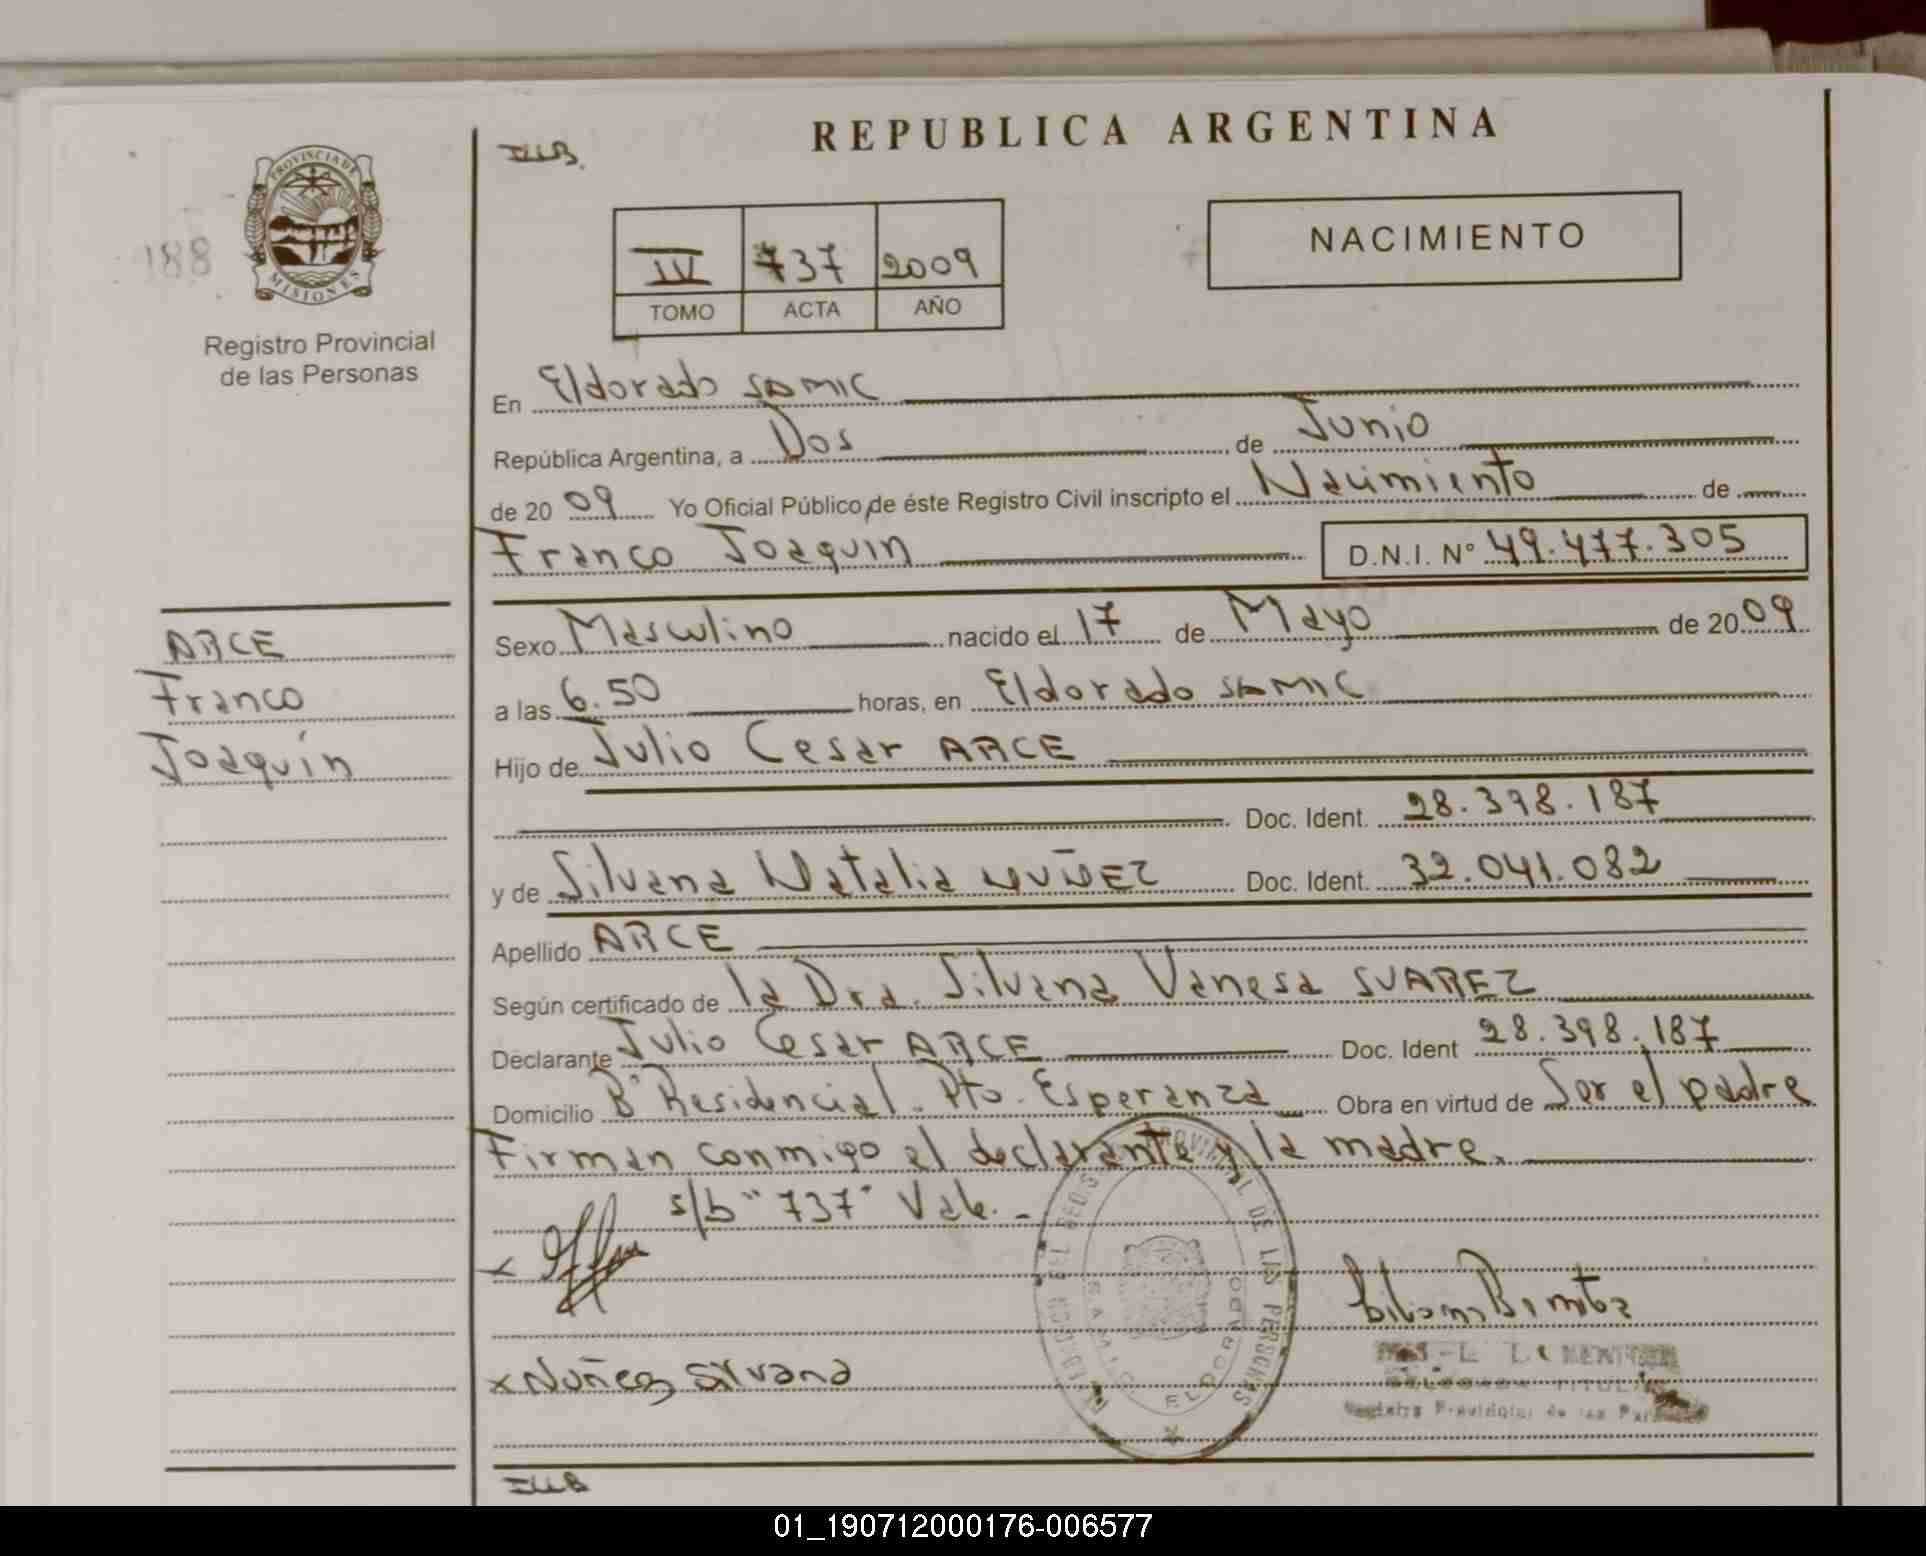 REPUBLICA ARGENTINA
PROVINCIA DE
MISIONES
188
Registro Provincial
de las Personas
NACIMIENTO
IV 737 2009
TOMO ACTA AÑO
En Eldorado SAMIC
República Argentina, a Dos de Junio
de 20 09 Yo Oficial Público, de éste Registro Civil inscripto el Nacimiento de
Franco Joaquin D.N.I. Nº 49.477.305
ARCE
Franco
Joaquín
Sexo Masculino nacido el 17 de Mayo de 20 09
a las 6.50 horas, en Eldorado SAMIC
Hijo de Julio Cesar ARCE
Doc. Ident. 28.398.187
y de Silvana Natalia NUÑEZ Doc. Ident. 32.041.082
Apellido ARCE
Según certificado de la Dra. Silvana Vanesa SUAREZ
Declarante Julio Cesar ARCE Doc. Ident 28.398.187
Domicilio Bº Residencial. Pto. Esperanza Obra en virtud de Ser el padre
Firman conmigo el declarante y la madre.
s/b "737" Vale. -
x
x Nuñez Silvana
PROVINCIAL DE LAS PERSONAS
ELDORADO
01_190712000176-006577